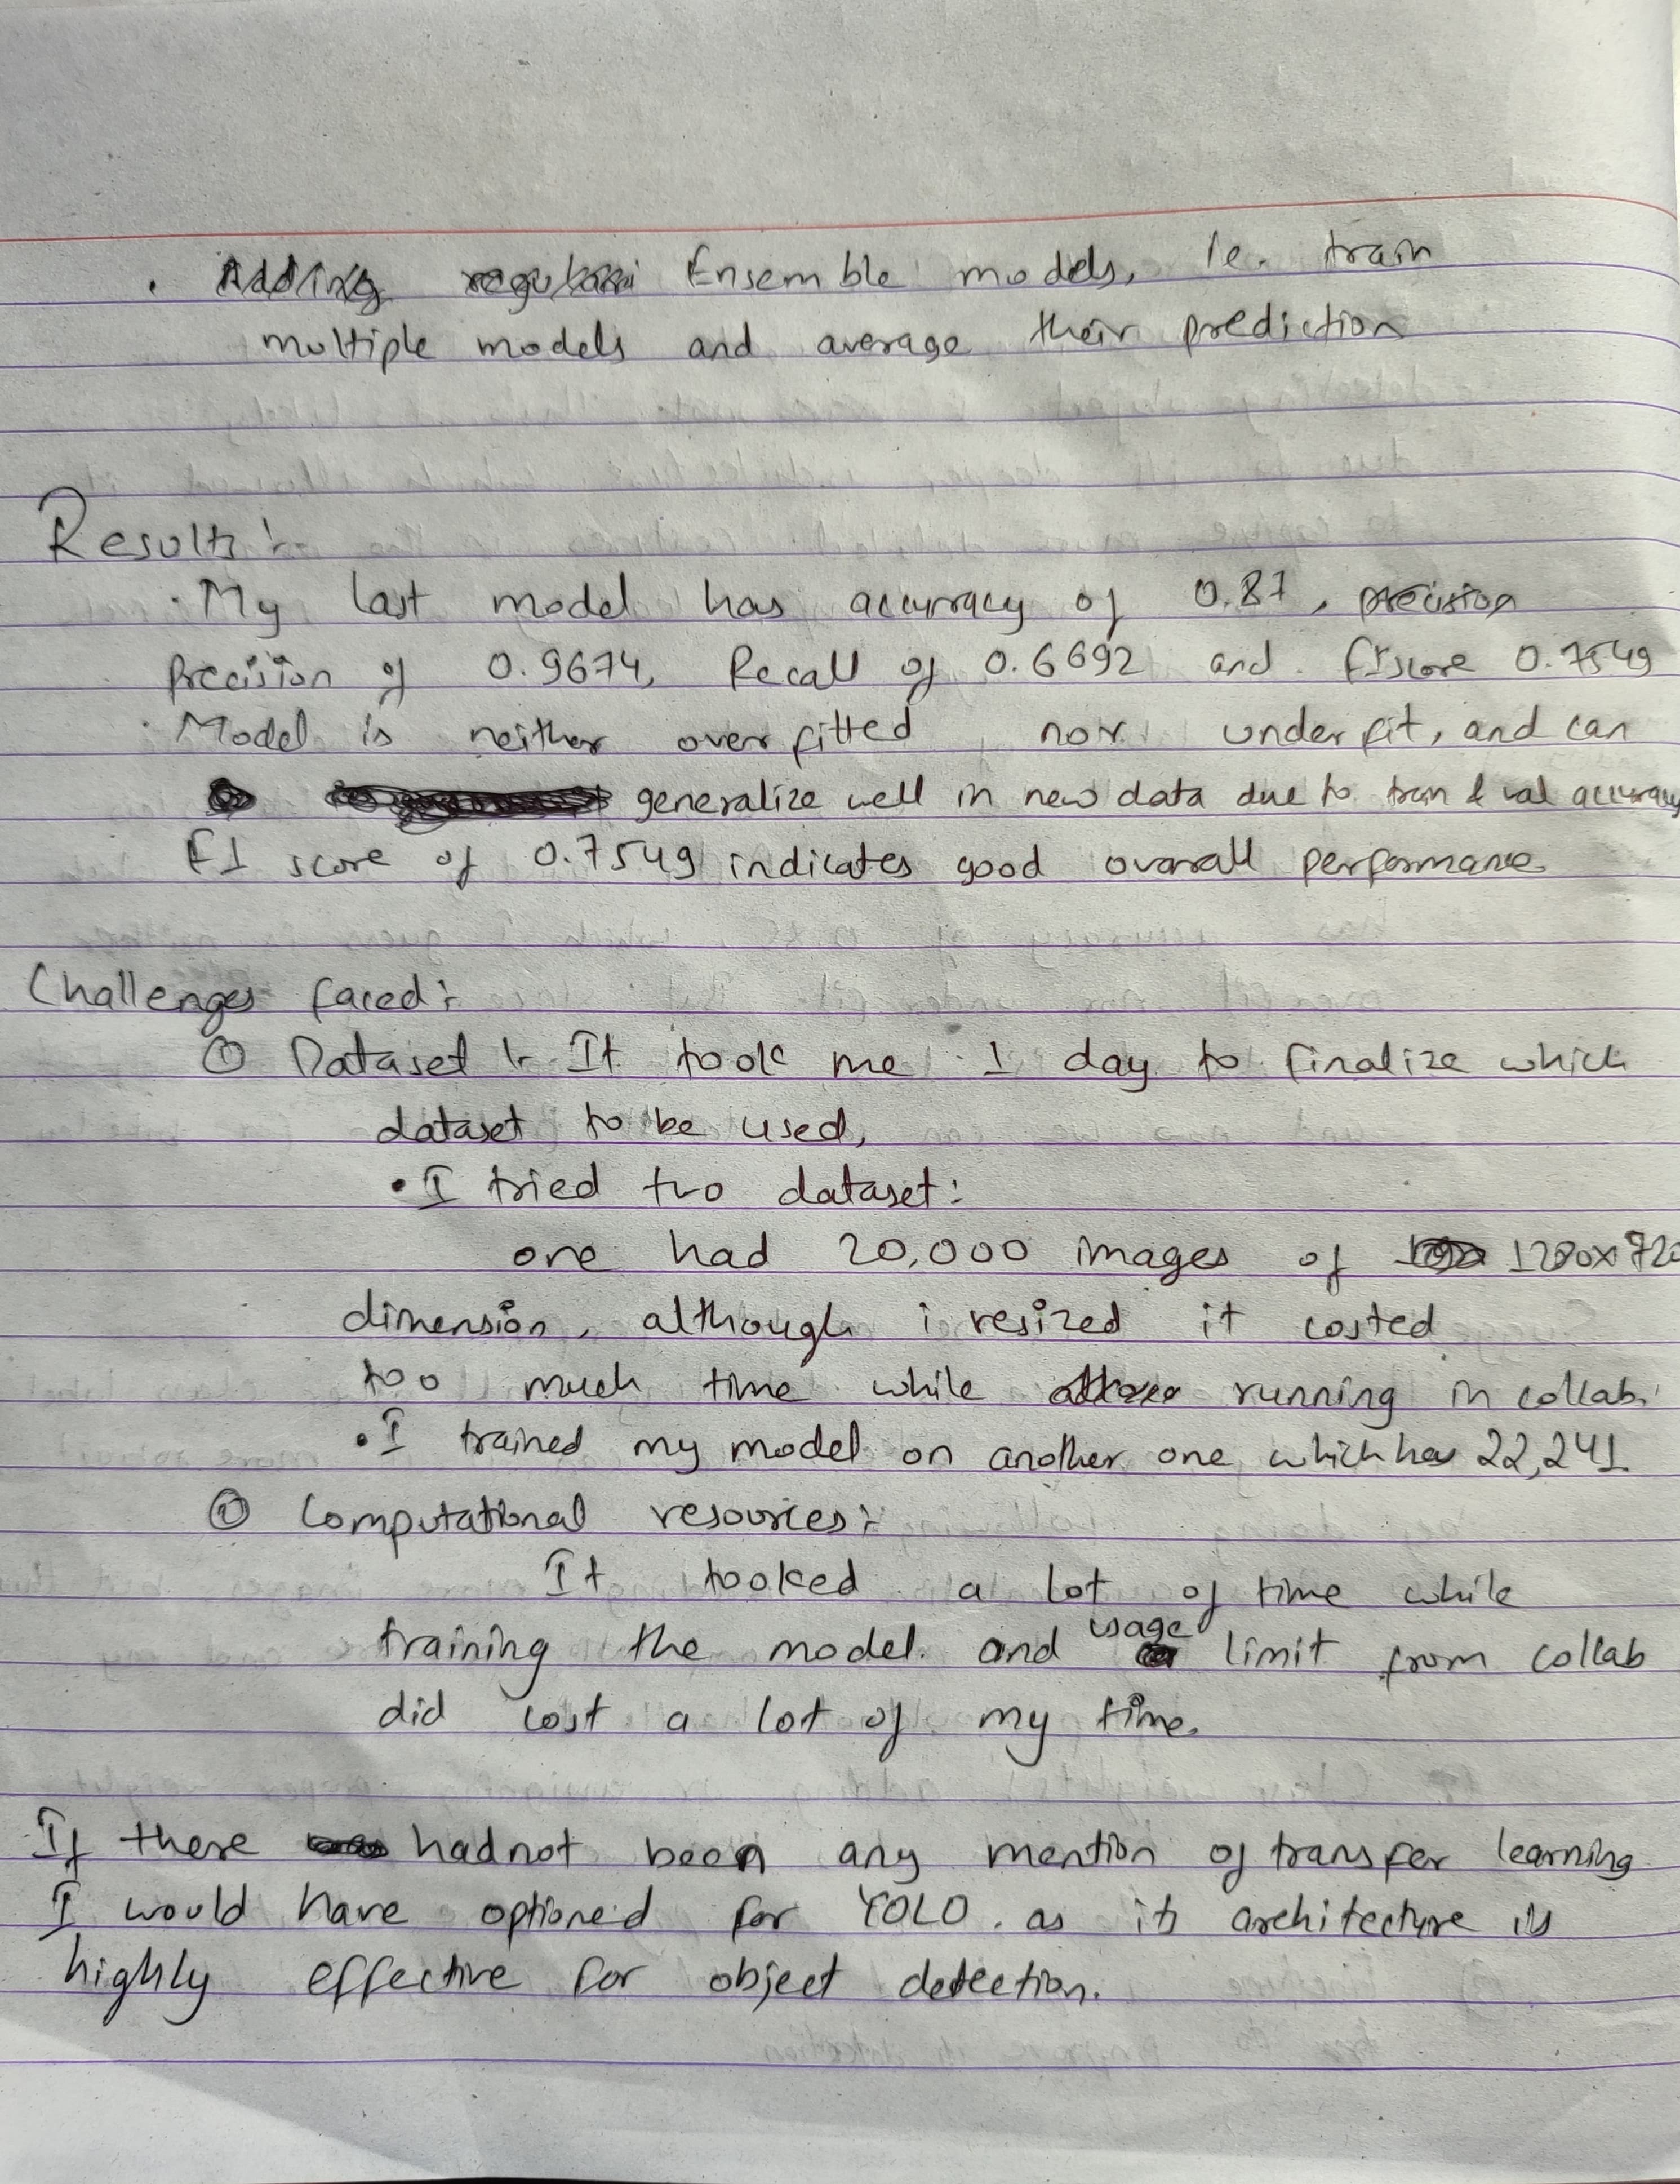 . Ensemble models, ie. train
multiple models and average their prediction
Results :-
. My last model has accuracy of 0.87, precision
precision of 0.9674, Recall of 0.6692 and F1score 0.7549
. Model is neither overfitted nor underfit, and can
generalize well in new data due to train & val accuracy
F1 score of 0.7549 indicates good overall performance
Challenges faced :-
① Dataset :- It took me 1 day to finalize which
dataset to be used,
• I tried two dataset:
one had 20,000 images of 1280x720
dimension, although i resized it costed
too much time while running in collab.
• I trained my model on another one which has 22,241
② Computational resources :-
It tooked a lot of time while
training the model. and usage limit from collab
did cost a lot of my time.
If there hadnot been any mention of transfer learning
I would have optioned for YOLO. as its architecture is
highly effective for object detection.